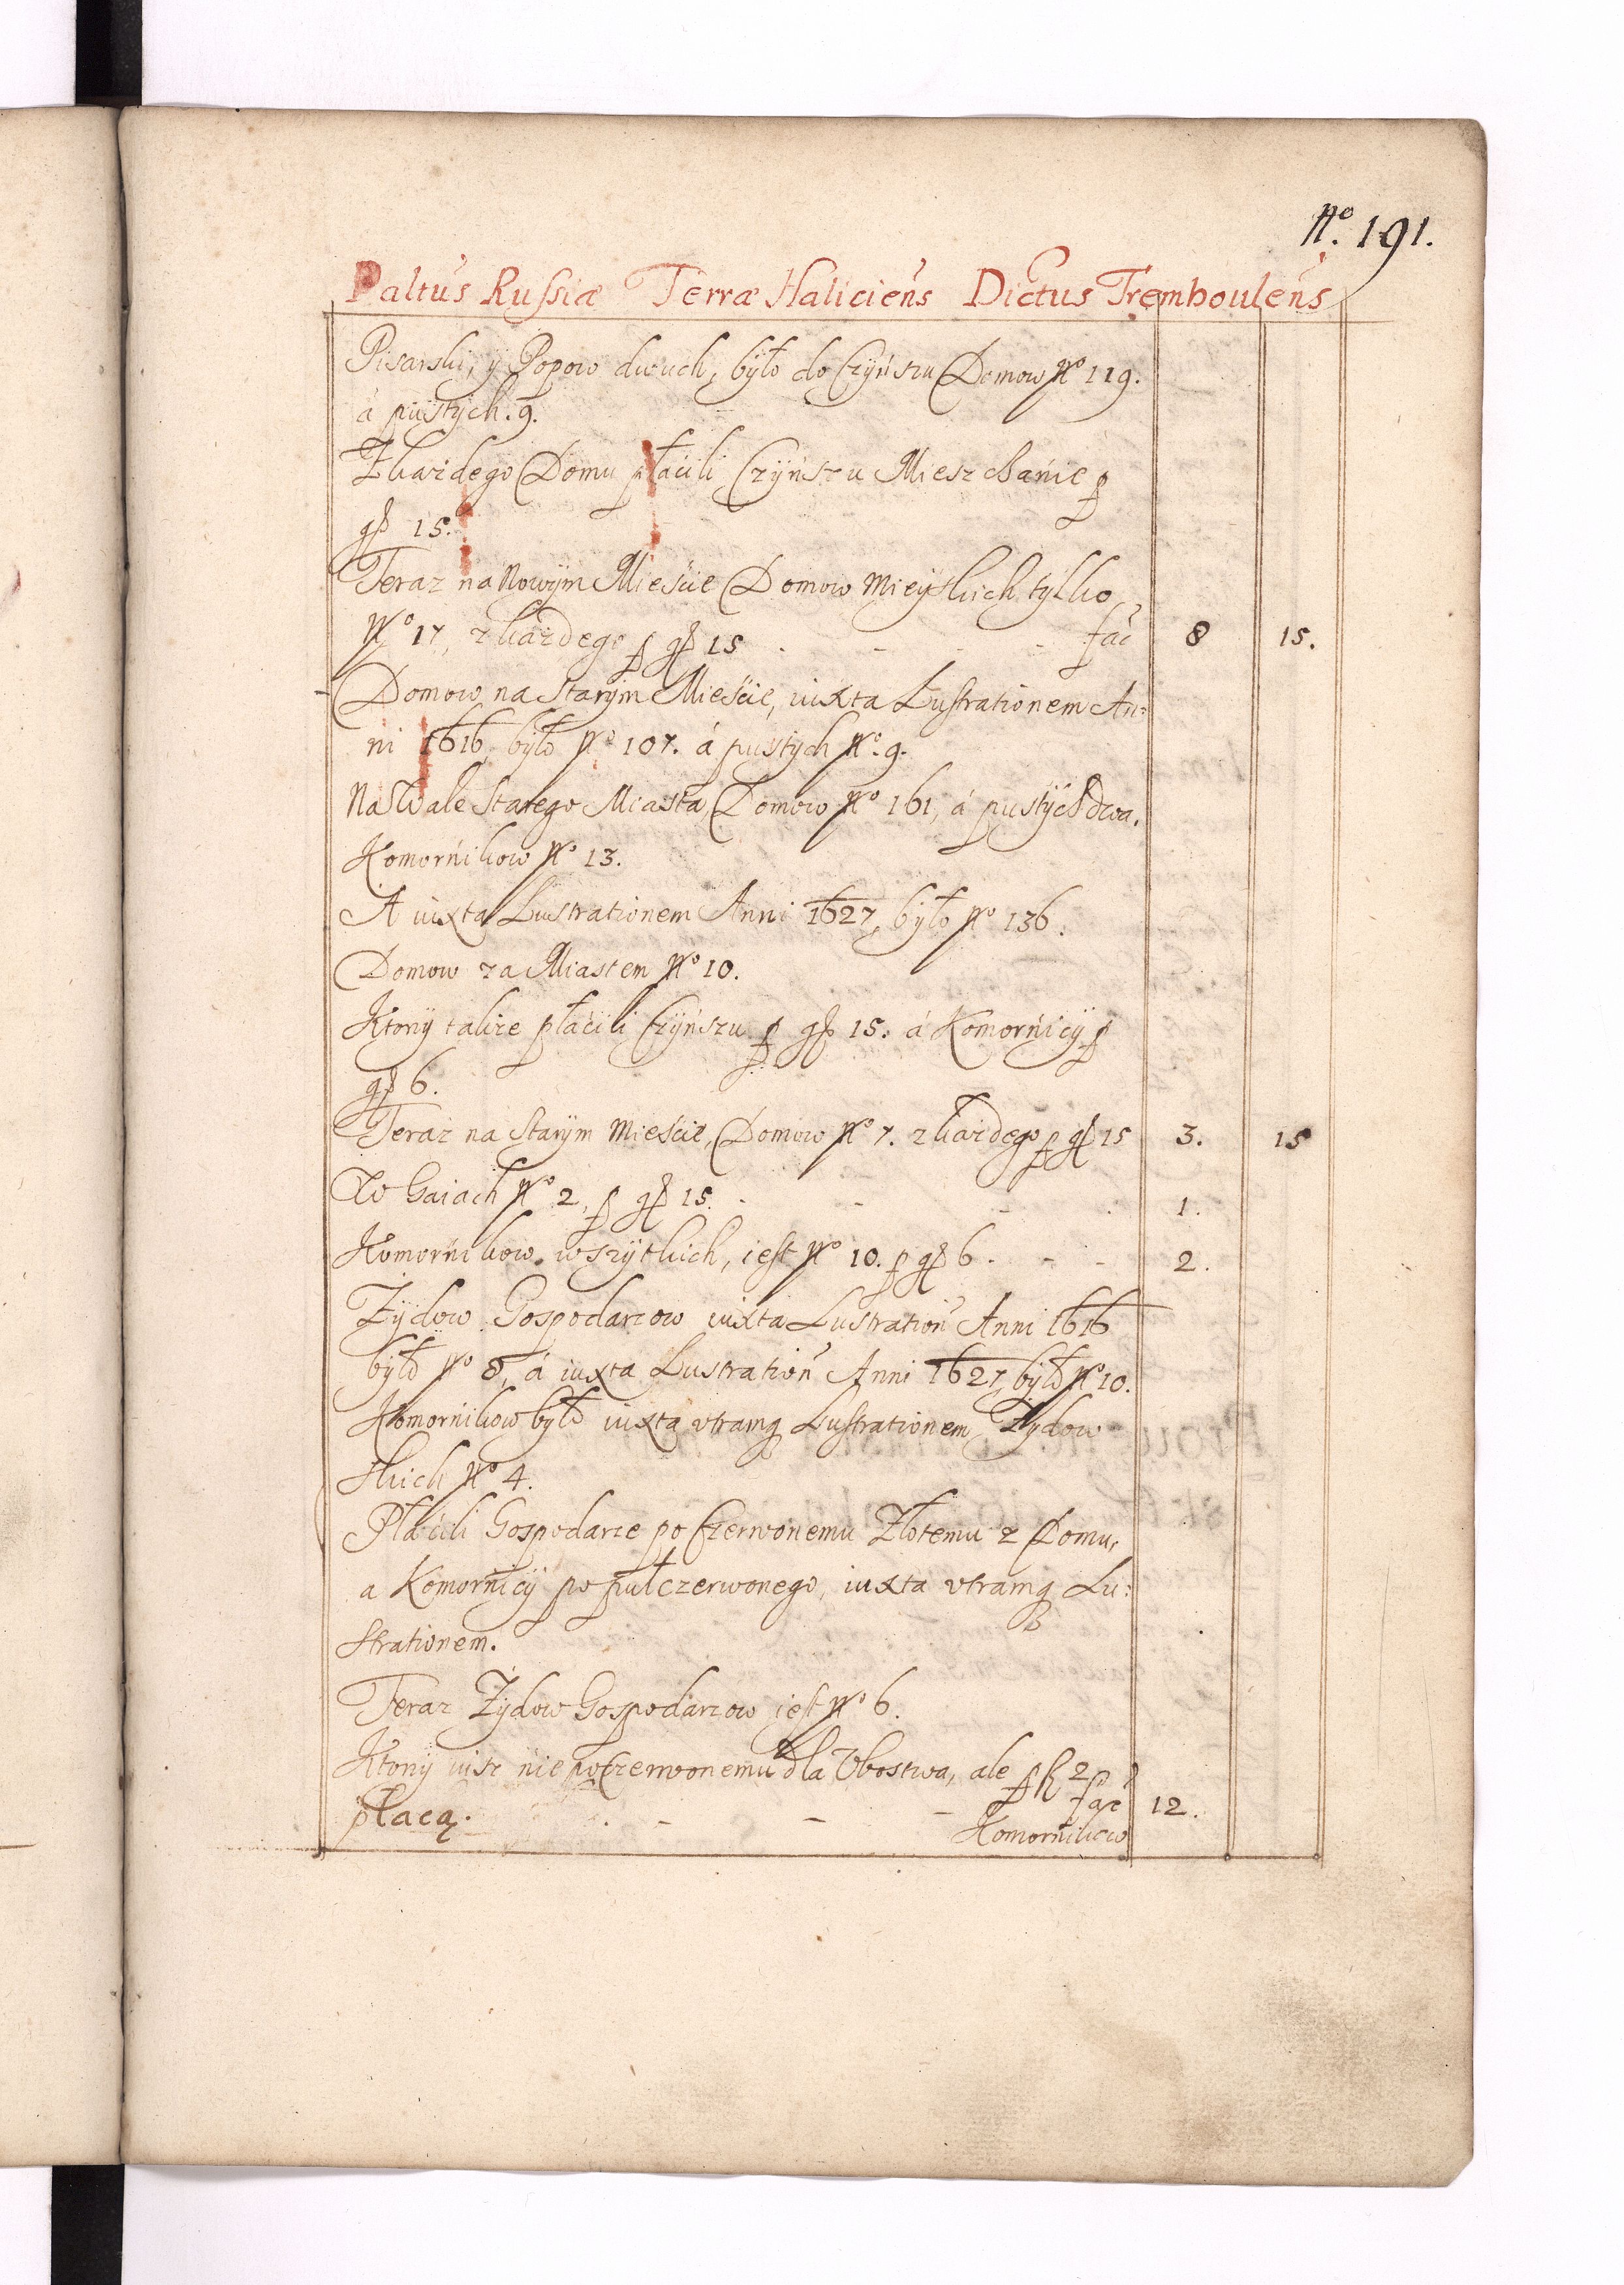 No. 191.
Paltus Russiæ Terræ Haliciens Dictus Tremboulens
Pisarski, y Popow dwuch, było do Czÿńszu Domow No 119.
á pustÿch. 9.
Z każdego Domu płaćili Czÿńszu Mieszczánie p
gß 15.
Teraz na Nowÿm Mieśćie Domow Mieÿskich tylko,
No 17, z każdego p gß 15 - - - fac 8 15.
Domow na Starÿm Mieśćie, iuxta Lustrationem An:
ni 1616 było No 107. á pustÿch No. 9.
Na Wale Starego Miasta, Domow No 161, á pustÿch dwa.
Komorńikow No 13.
A iuxta Lustrationem Anni 1627, było No 136.
Domow za Miastem No 10.
Ktorÿ także płaćili Czÿńszu p gß 15. á Komorńicÿ p
gß 6.
Teraz na Starÿm Mieśćie, Domow No 7. z każdego p gß 15 3. 15
W Gaiach No 2, p gß 15. - - - 1.
Komorńikow wszÿtkich, iest No 10. p gß 6. - - 2.
Żÿdow Gospodarzow iuxta Lustration Anni 1616
było No 8, á iuxta Lustration Anni 1627, było No 10.
Komorńikow było iuxta vtramq Lustrationem, Żydow
skich No 4.
Płaćili Gospodarze po Czerwonemu Złotemu z Domu,
a Komorńicÿ po pułczerwonego, iuxta vtramq Lu:
strationem.
Teraz Żÿdow Gospodarzow iest No 6.
Ktorÿ iusz nie po Czerwonemu dla Vbostwa, ale p fl 2
płacą. - - - fac 12.
Komorńikow